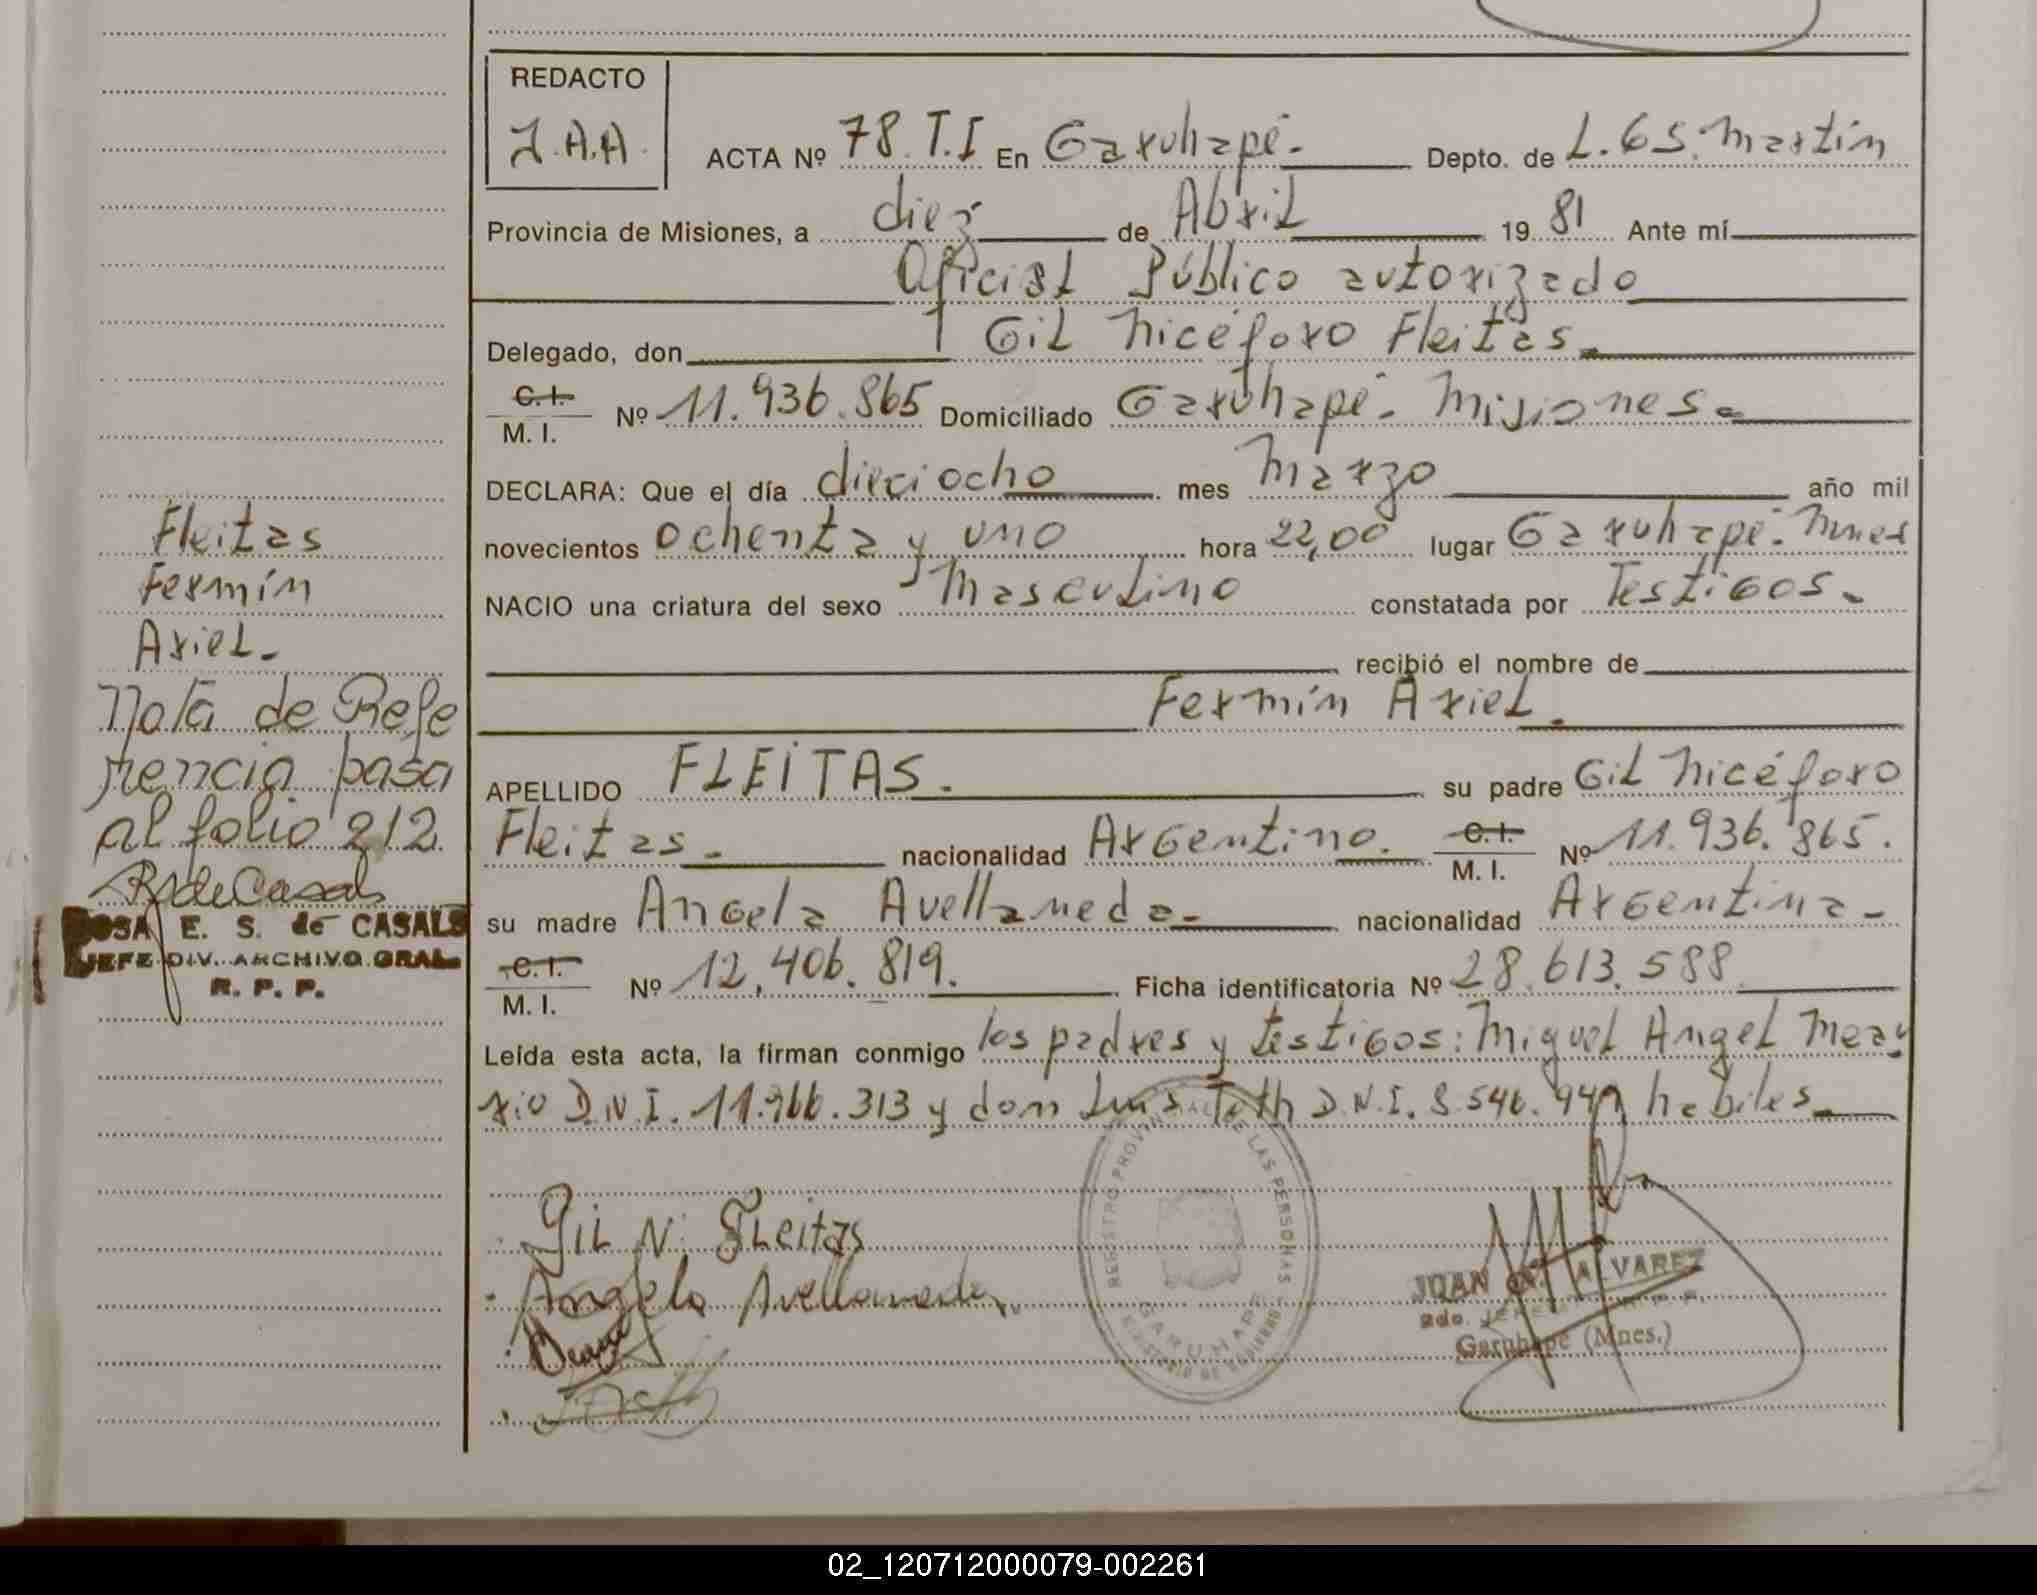 REDACTO
J.A.A.
ACTA Nº 78 T.I En Garuhapé. Depto. de L. GS. Martin
Provincia de Misiones, a diez de Abril 19 81 Ante mí
Oficial Público autorizado
Delegado, don Gil Nicéforo Fleitas.
C. I.
M. I. Nº 11.936.865 Domiciliado Garuhapé. Misiones.
DECLARA: Que el día dieciocho mes Marzo año mil
novecientos ochenta y uno hora 22,00 lugar Garuhapé. Mnes
NACIO una criatura del sexo Masculino constatada por Testigos.
recibió el nombre de
Fermín Ariel.
APELLIDO FLEITAS. su padre Gil Nicéforo
Fleitas. nacionalidad Argentino. C. I. M. I. Nº 11.936.865.
su madre Angela Avellaneda. nacionalidad Argentina.
C. I.
M. I. Nº 12,406.819. Ficha identificatoria Nº 28.613.588
Leída esta acta, la firman conmigo los padres y testigos: Miguel Angel
D.N.I. 11.966.313 y don Luis Toth D.N.I. 8.546.949 habiles.
Gil N. Fleitas
Angela Avellaneda
Fleitas
Fermín
Ariel.
Nota de Refe
rencia pasa
al folio 212.
R S de Casals
ROSA E. S. de CASALS
JEFE DIV. ARCHIVO GRAL.
R. P. P.
REGISTRO PROVINCIAL DE LAS PERSONAS
GARUHAPE
MINISTERIO DE GOBIERNO
JUAN ALVAREZ
Garuhapé (Mnes.)
02_120712000079-002261